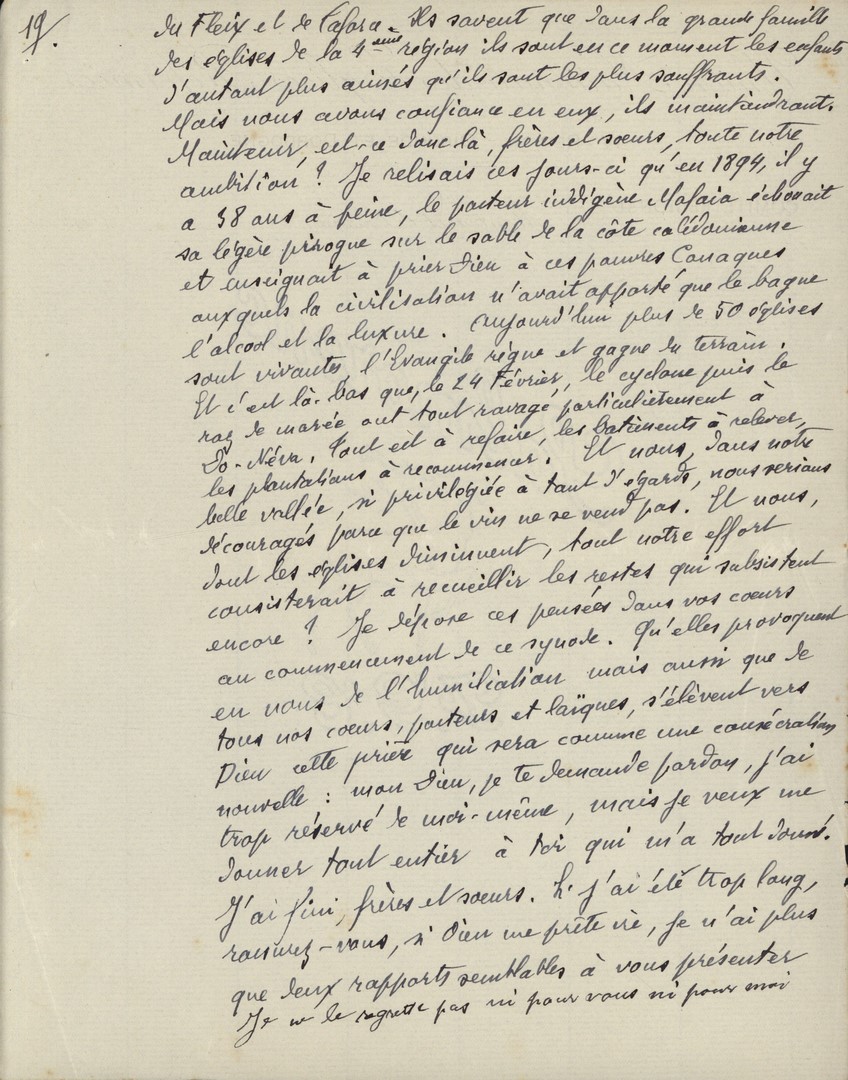 19.
du Fleix et de Lafara. Ils savent que dans la grande famille
des églises de la 4ème région ils sont en ce moment les enfants
d'autant plus aimés qu'ils sont les plus souffrants.
Mais nous avons confiance en eux, ils maintiendront.
Maintenir, est-ce donc là, frères et soeurs, toute notre
ambition ? Je relisais ces jours-ci qu'en 1894, il y
a 38 ans à peine, le pasteur indigène Mafaia échouait
sa légère pirogue sur le sable de la côte calédonienne
et enseignait à prier Dieu à ces pauvres Canaques
auxquels la civilisation n'avait apporté que le bagne
l'alcool et la luxure. Aujourd'hui plus de 50 églises
sont vivantes, l'Evangile règne et gagne du terrain.
Et c'est là-bas que, le 24 Février, le cyclone puis le
raz de marée ont tout ravagé particulièrement à
Do-Néva. Tout est à refaire, les batiments à relever,
les plantations à recommencer. Et nous, dans notre
belle vallée, si privilégiée à tant d'égards, nous serions
découragés parce que le vin ne se vend pas. Et nous,
dont les églises diminuent, tout notre effort
consisterait à recueillir les restes qui subsistent
encore ? Je dépose ces pensées dans vos coeurs
au commencement de ce synode. Qu'elles provoquent
en nous de l'humiliation mais aussi que de
tous nos coeurs, pasteurs et laïques, s'élèvent vers
Dieu cette prière qui sera comme une consécration
nouvelle : mon Dieu, je te demande pardon, j'ai
trop réservé de moi-même, mais je veux me
donner tout entier à toi qui m'a tout donné.
J'ai fini, frères et soeurs. Si j'ai été trop long,
rassurez-vous, si Dieu me prête vie, je n'ai plus
que deux rapports semblables à vous présenter
Je ne le regrette pas ni pour vous ni pour moi